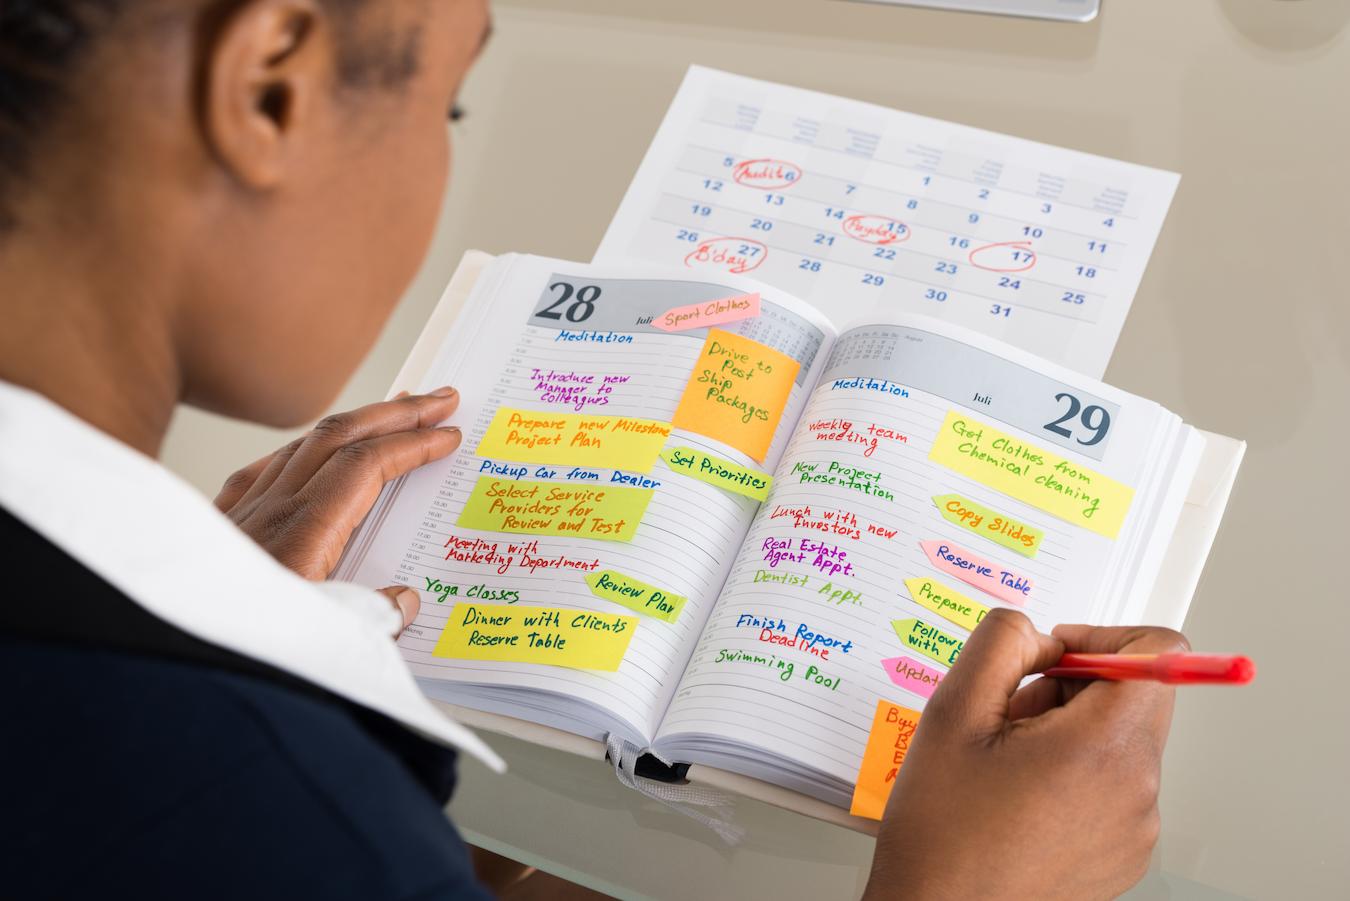 5
Audit 6
7
1
2
3
4
12
13
14
8
9
10
11
19
20
21
Payday 15
16
17
18
26
27
B'day
28
22
23
24
25
29
30
31
28
Juli
Sport Clothes
Meditation
Drive to
Post
Ship
Packages
Introduce new
Manager to
Colleagues
Prepare new Milestone
Project Plan
Set Priorities
Pickup Car from Dealer
Select Service
Providers for
Review and Test
Meeting with
Marketing Department
Review Plan
Yoga Classes
Dinner with Clients
Reserve Table
Juli
29
August
Meditation
Get Clothes from
Chemical cleaning
Weekly team
meeting
New Project
Presentation
Copy Slides
Lunch with new
Investors
Reserve Table
Real Estate
Agent Appt.
Dentist Appt.
Prepare
Follow
with
Finish Report
Deadline
Updat
Swimming Pool
Buy